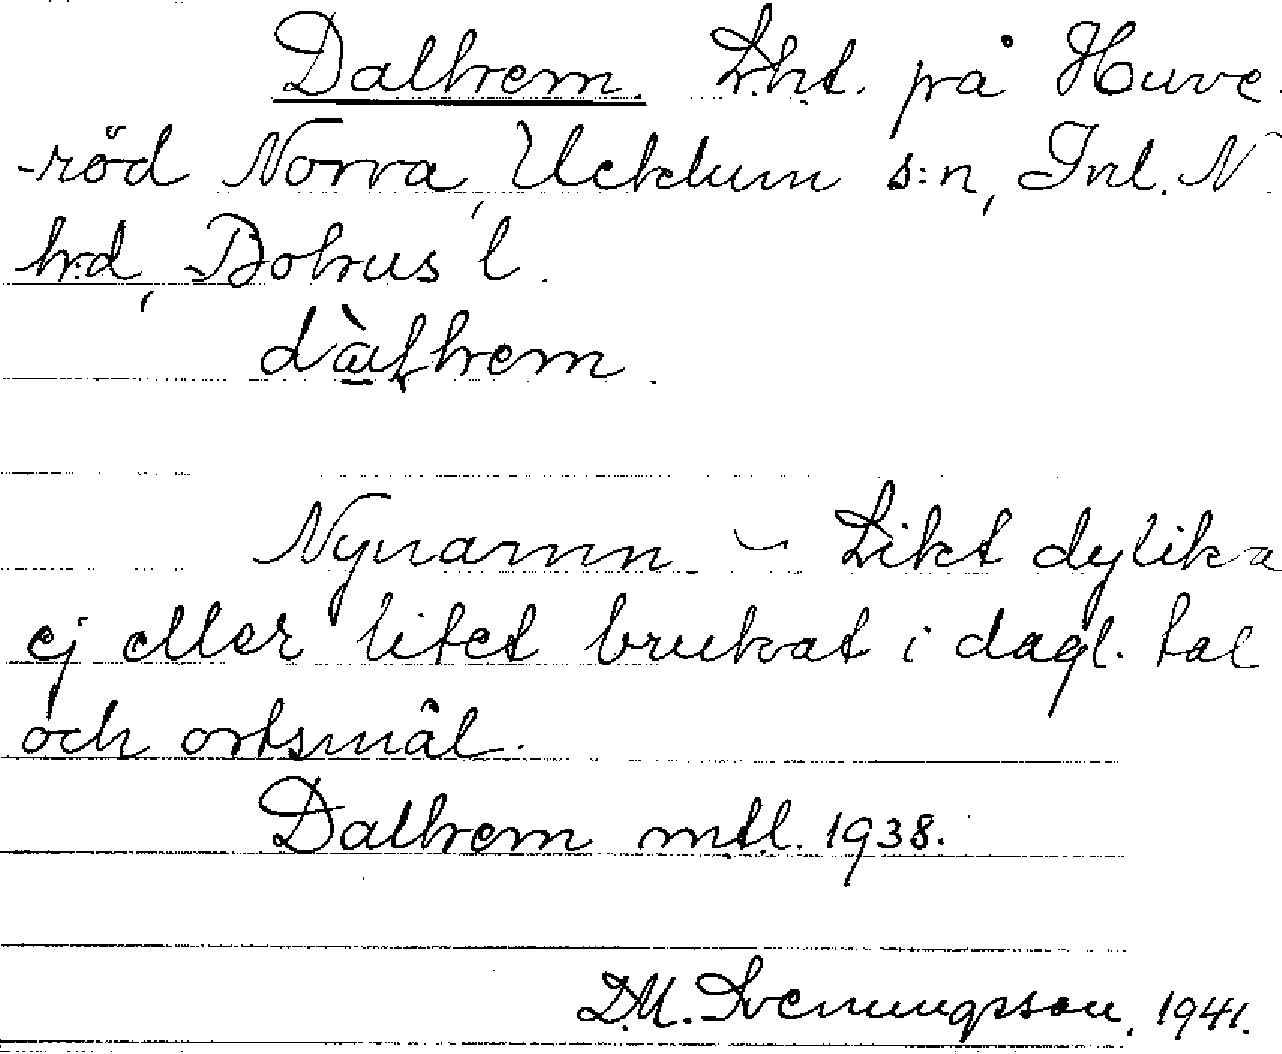 Dalhem. Lht. på Huve-
-röd Norra, Ucklum s:n, Inl. N.
hd, Bohus l.
dàlhem.
Nynamn – Likt dylika
ej eller litet brukat i dagl. tal
och ortsmål.
Dalhem mtl. 1938.
D.M. Svenungsson, 1941.